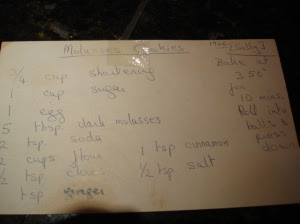 Molasses Cookies
3/4 cup shortening
1 cup sugar
1 egg
5 tbsp dark molasses
2 tsp soda
2 cups flour 1 tsp cinnamon
1/2 tsp cloves 1/2 tsp salt
tsp ginger
Bake at
350°
for
10 mins.
Roll into
balls &
press
down